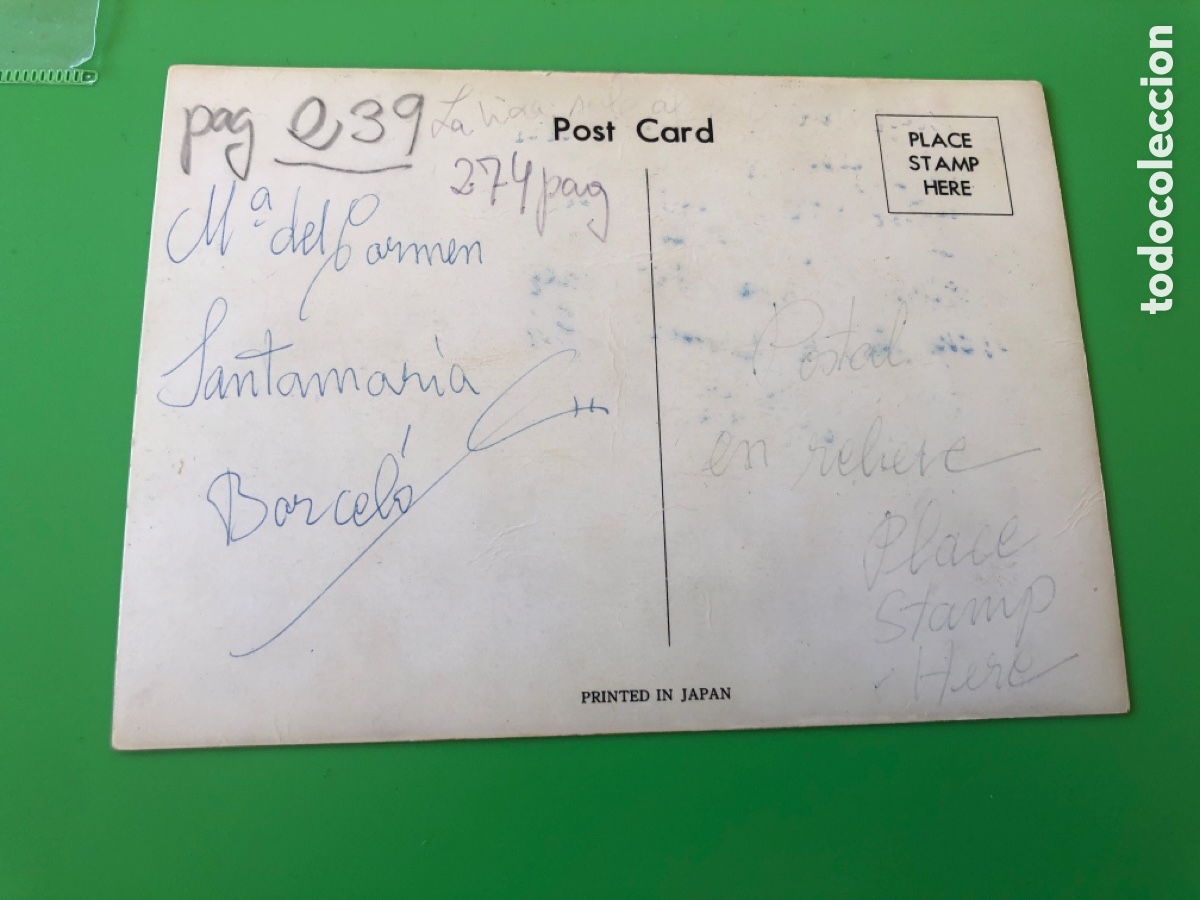 pag 239
La
Post Card
274 pag
PLACE
STAMP
HERE
Mª del Carmen
Santamaría
Barceló
Postal
en relieve
Place
Stamp
Here
PRINTED IN JAPAN
todocoleccion